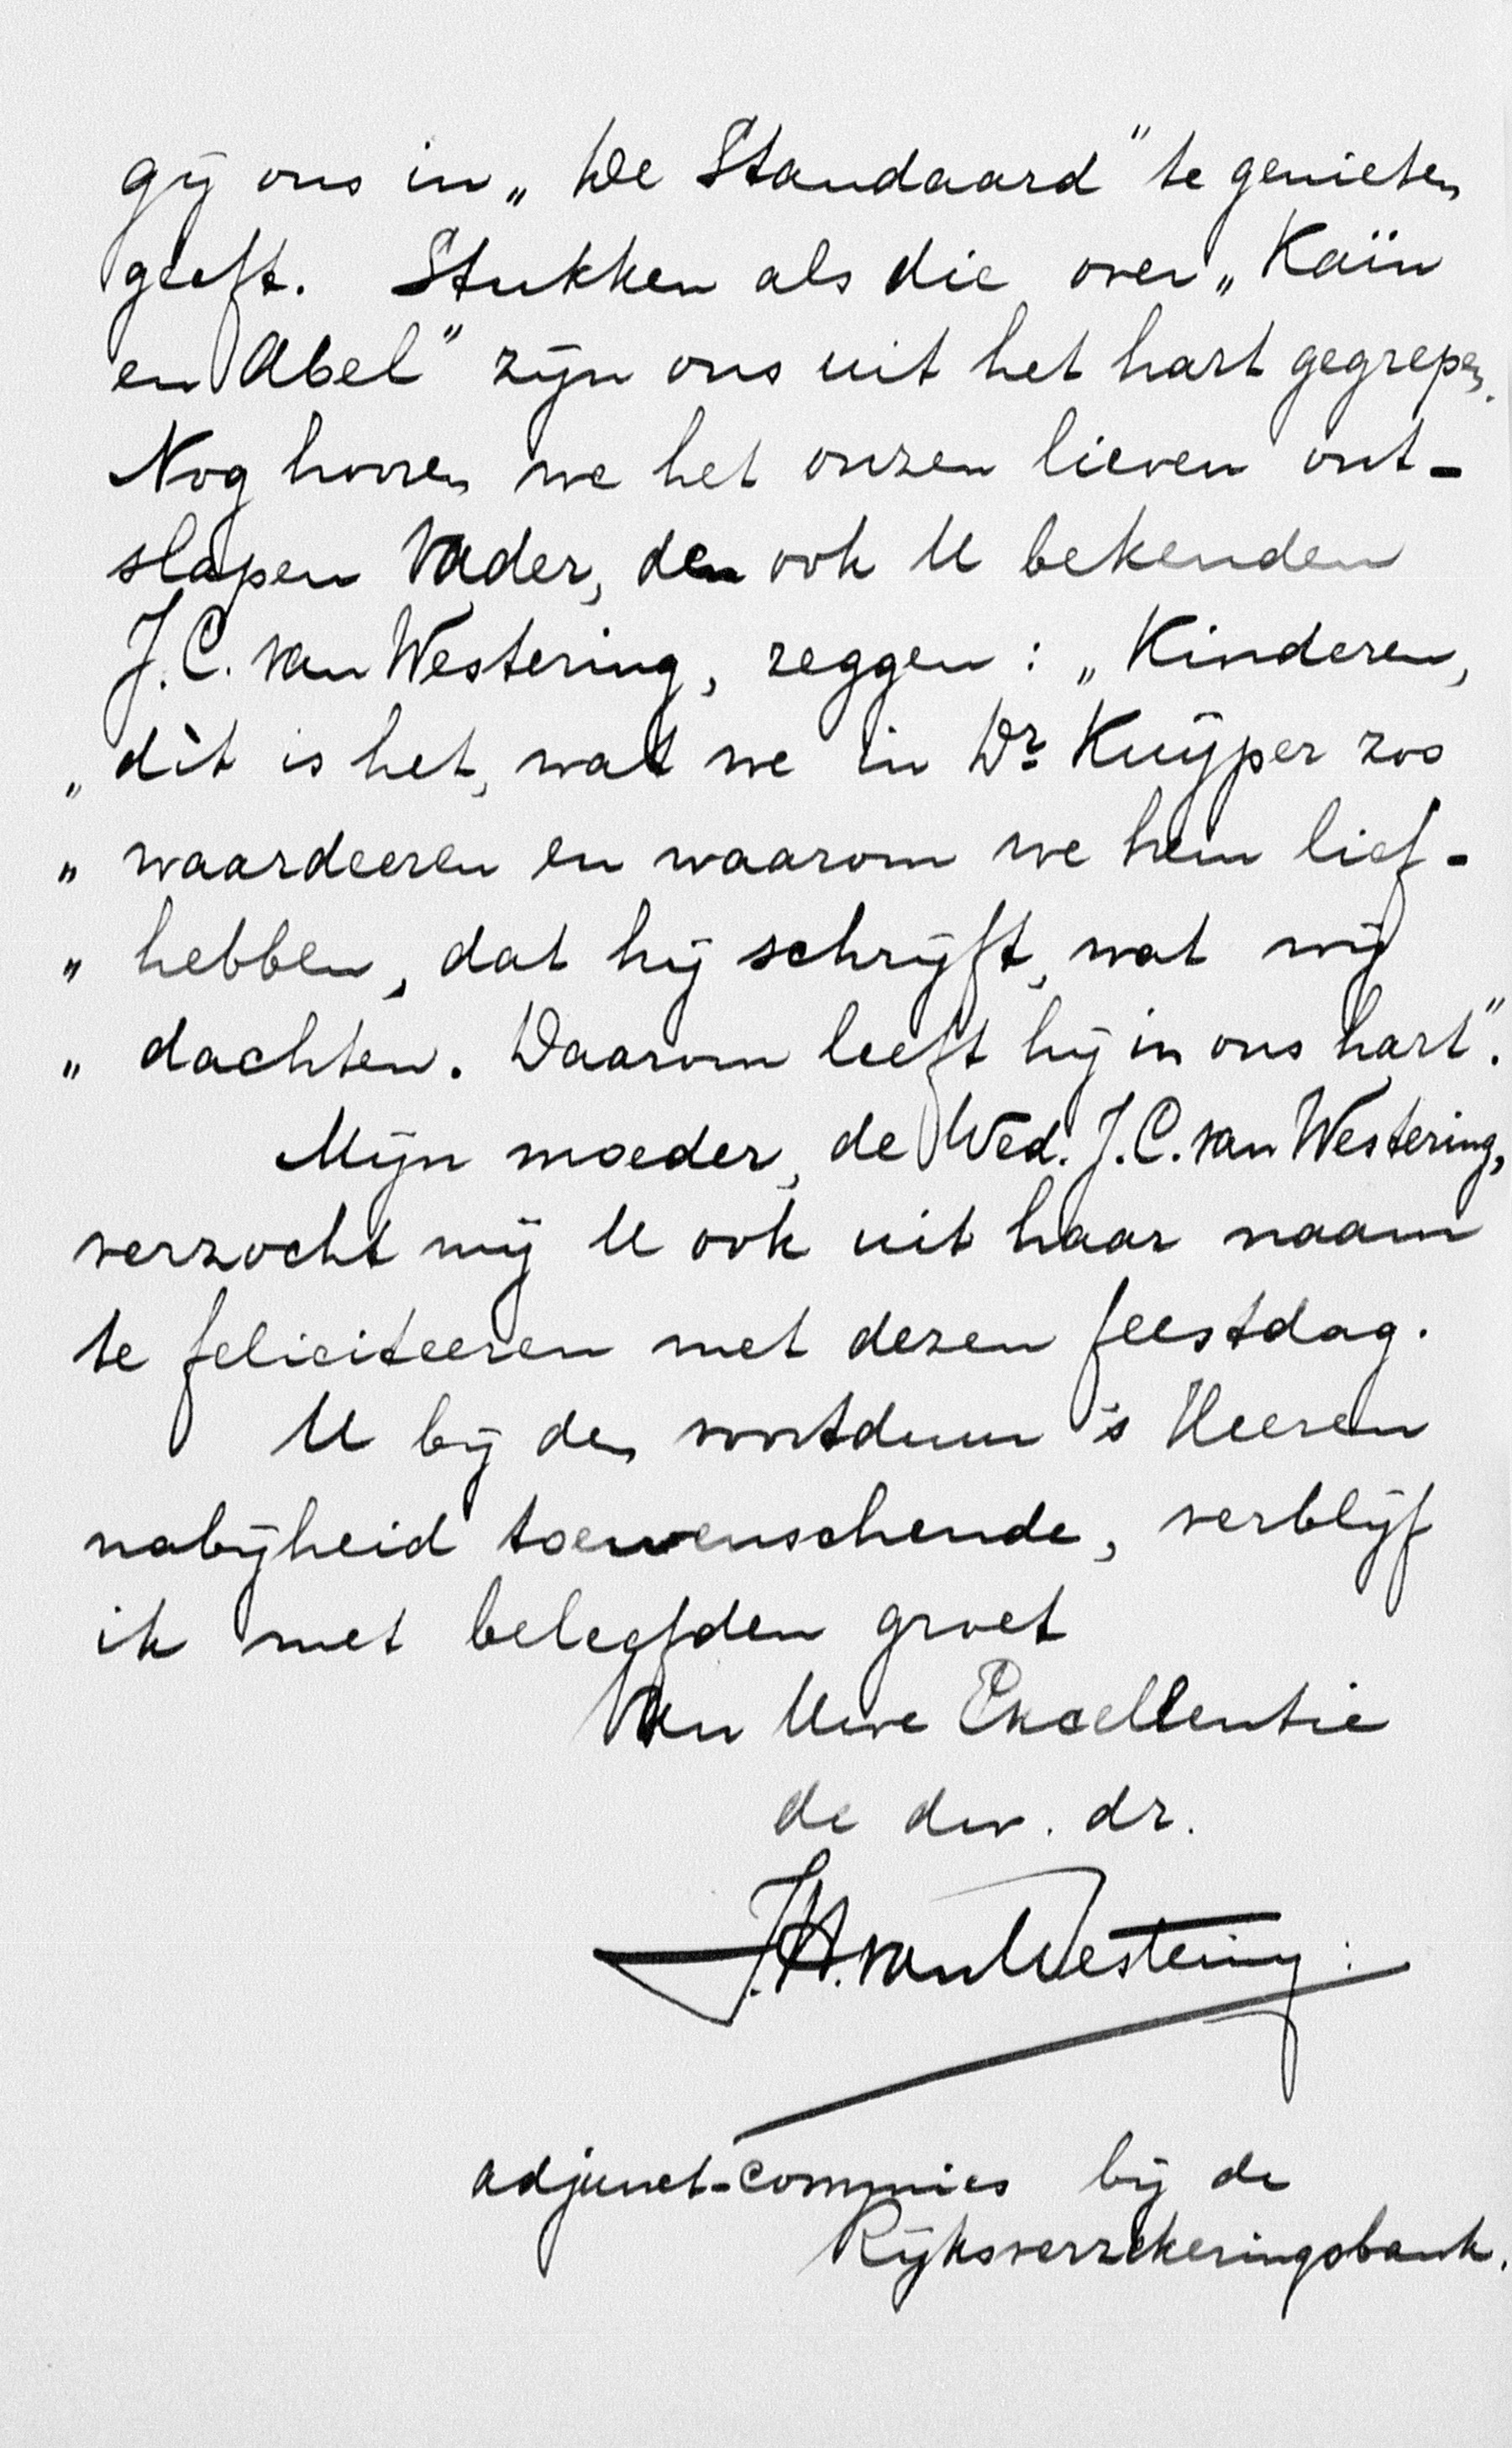 gij ons in „De Standaard” te genieten
geeft. Stukken als die over „Kaïn
en Abel” zijn ons uit het hart gegrepen.
Nog hooren we het onzen lieven ont-
slapen Vader, den ook U bekenden
J.C. van Westering, zeggen: „Kinderen,
„dìt is het, wat we in Dr. Kuijper zoo
„waardeeren en waarom we hem lief-
„hebben, dat hij schrijft, wat wij
„dachten. Daarom leeft hij in ons hart”.
Mijn moeder, de Wed. J.C. van Westering,
verzocht mij U ook uit haar naam
te feliciteeren met dezen feestdag.
U bij den voortduur 's Heeren
nabijheid toewenschende, verblijf
ik met beleefden groet
Van Uwe Excellentie
de dw. dr.
J.H. van Westering.
adjunct-commies bij de
Rijksverzekeringsbank.